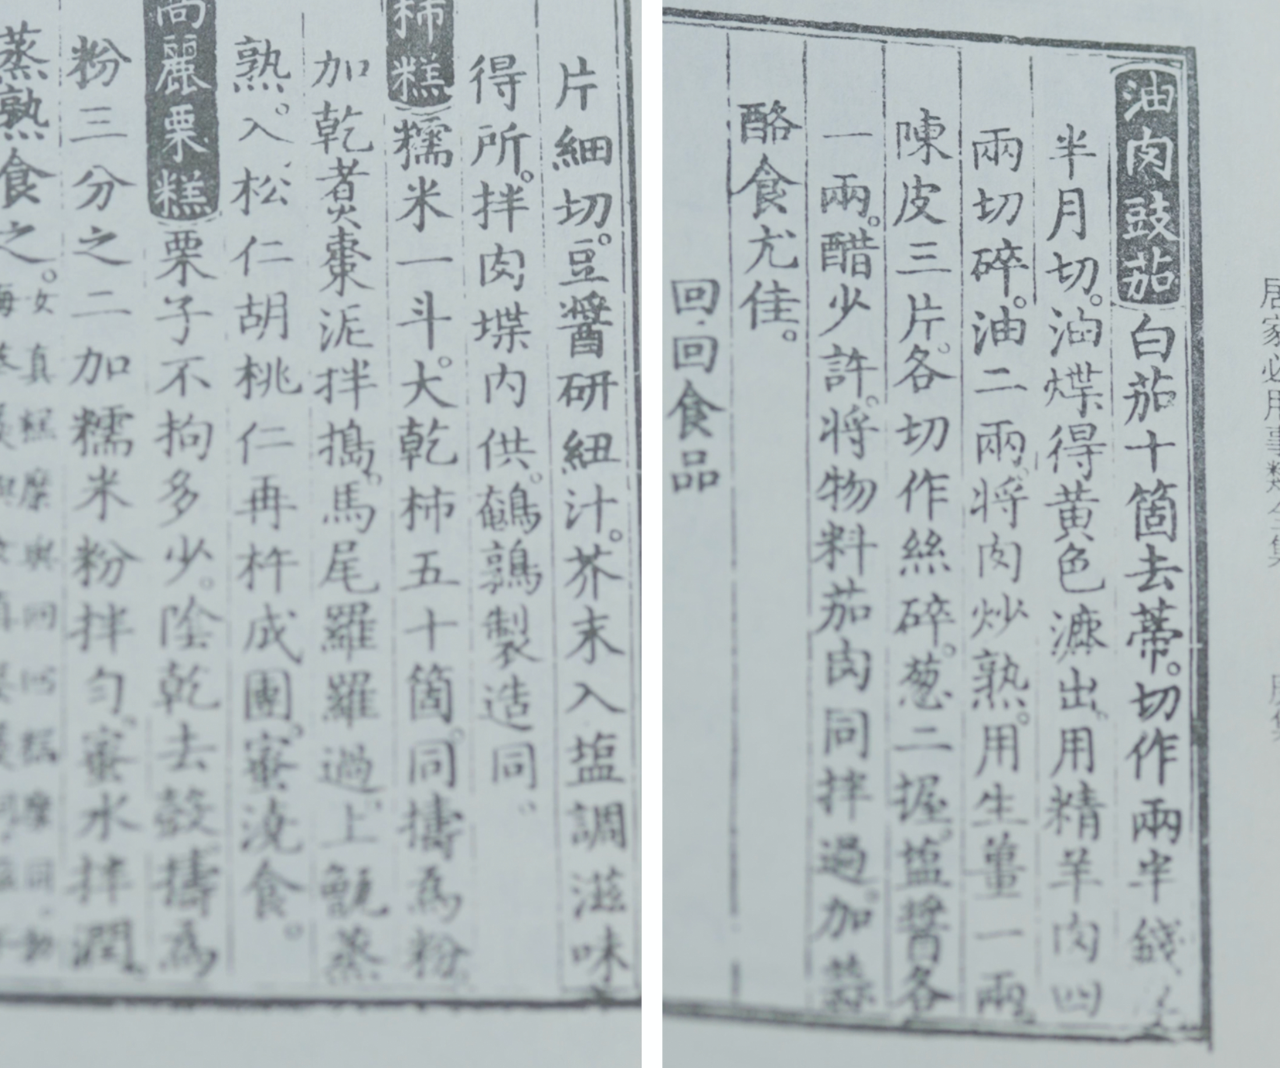 居家必用事類全集
油肉豉茄 白茄十箇去蒂。切作兩半錢
半月切。油煠得黃色漉出。用精羊肉四
兩切碎。油二兩。將肉炒熟。用生薑一兩
陳皮三片。各切作絲碎。葱二握。塩醬各
一兩。醋少許。將物料茄肉同拌過。加蒜
酪食尤佳。
回回食品
片細切。豆醬研紐汁。芥末入塩調滋味
得所。拌肉堞內供。鵪鶉製造同。
柿糕 糯米一斗。大乾柿五十箇。同擣為粉
加乾煮棗泥拌搗。馬尾羅羅過。上甑蒸
熟。入松仁胡桃仁再杵成團。蜜澆食。
高麗栗糕 栗子不拘多少。陰乾去殼擣為
粉三分之二加糯米粉拌勻。蜜水拌潤
蒸熟食之。女真糕糜與回回糕糜同